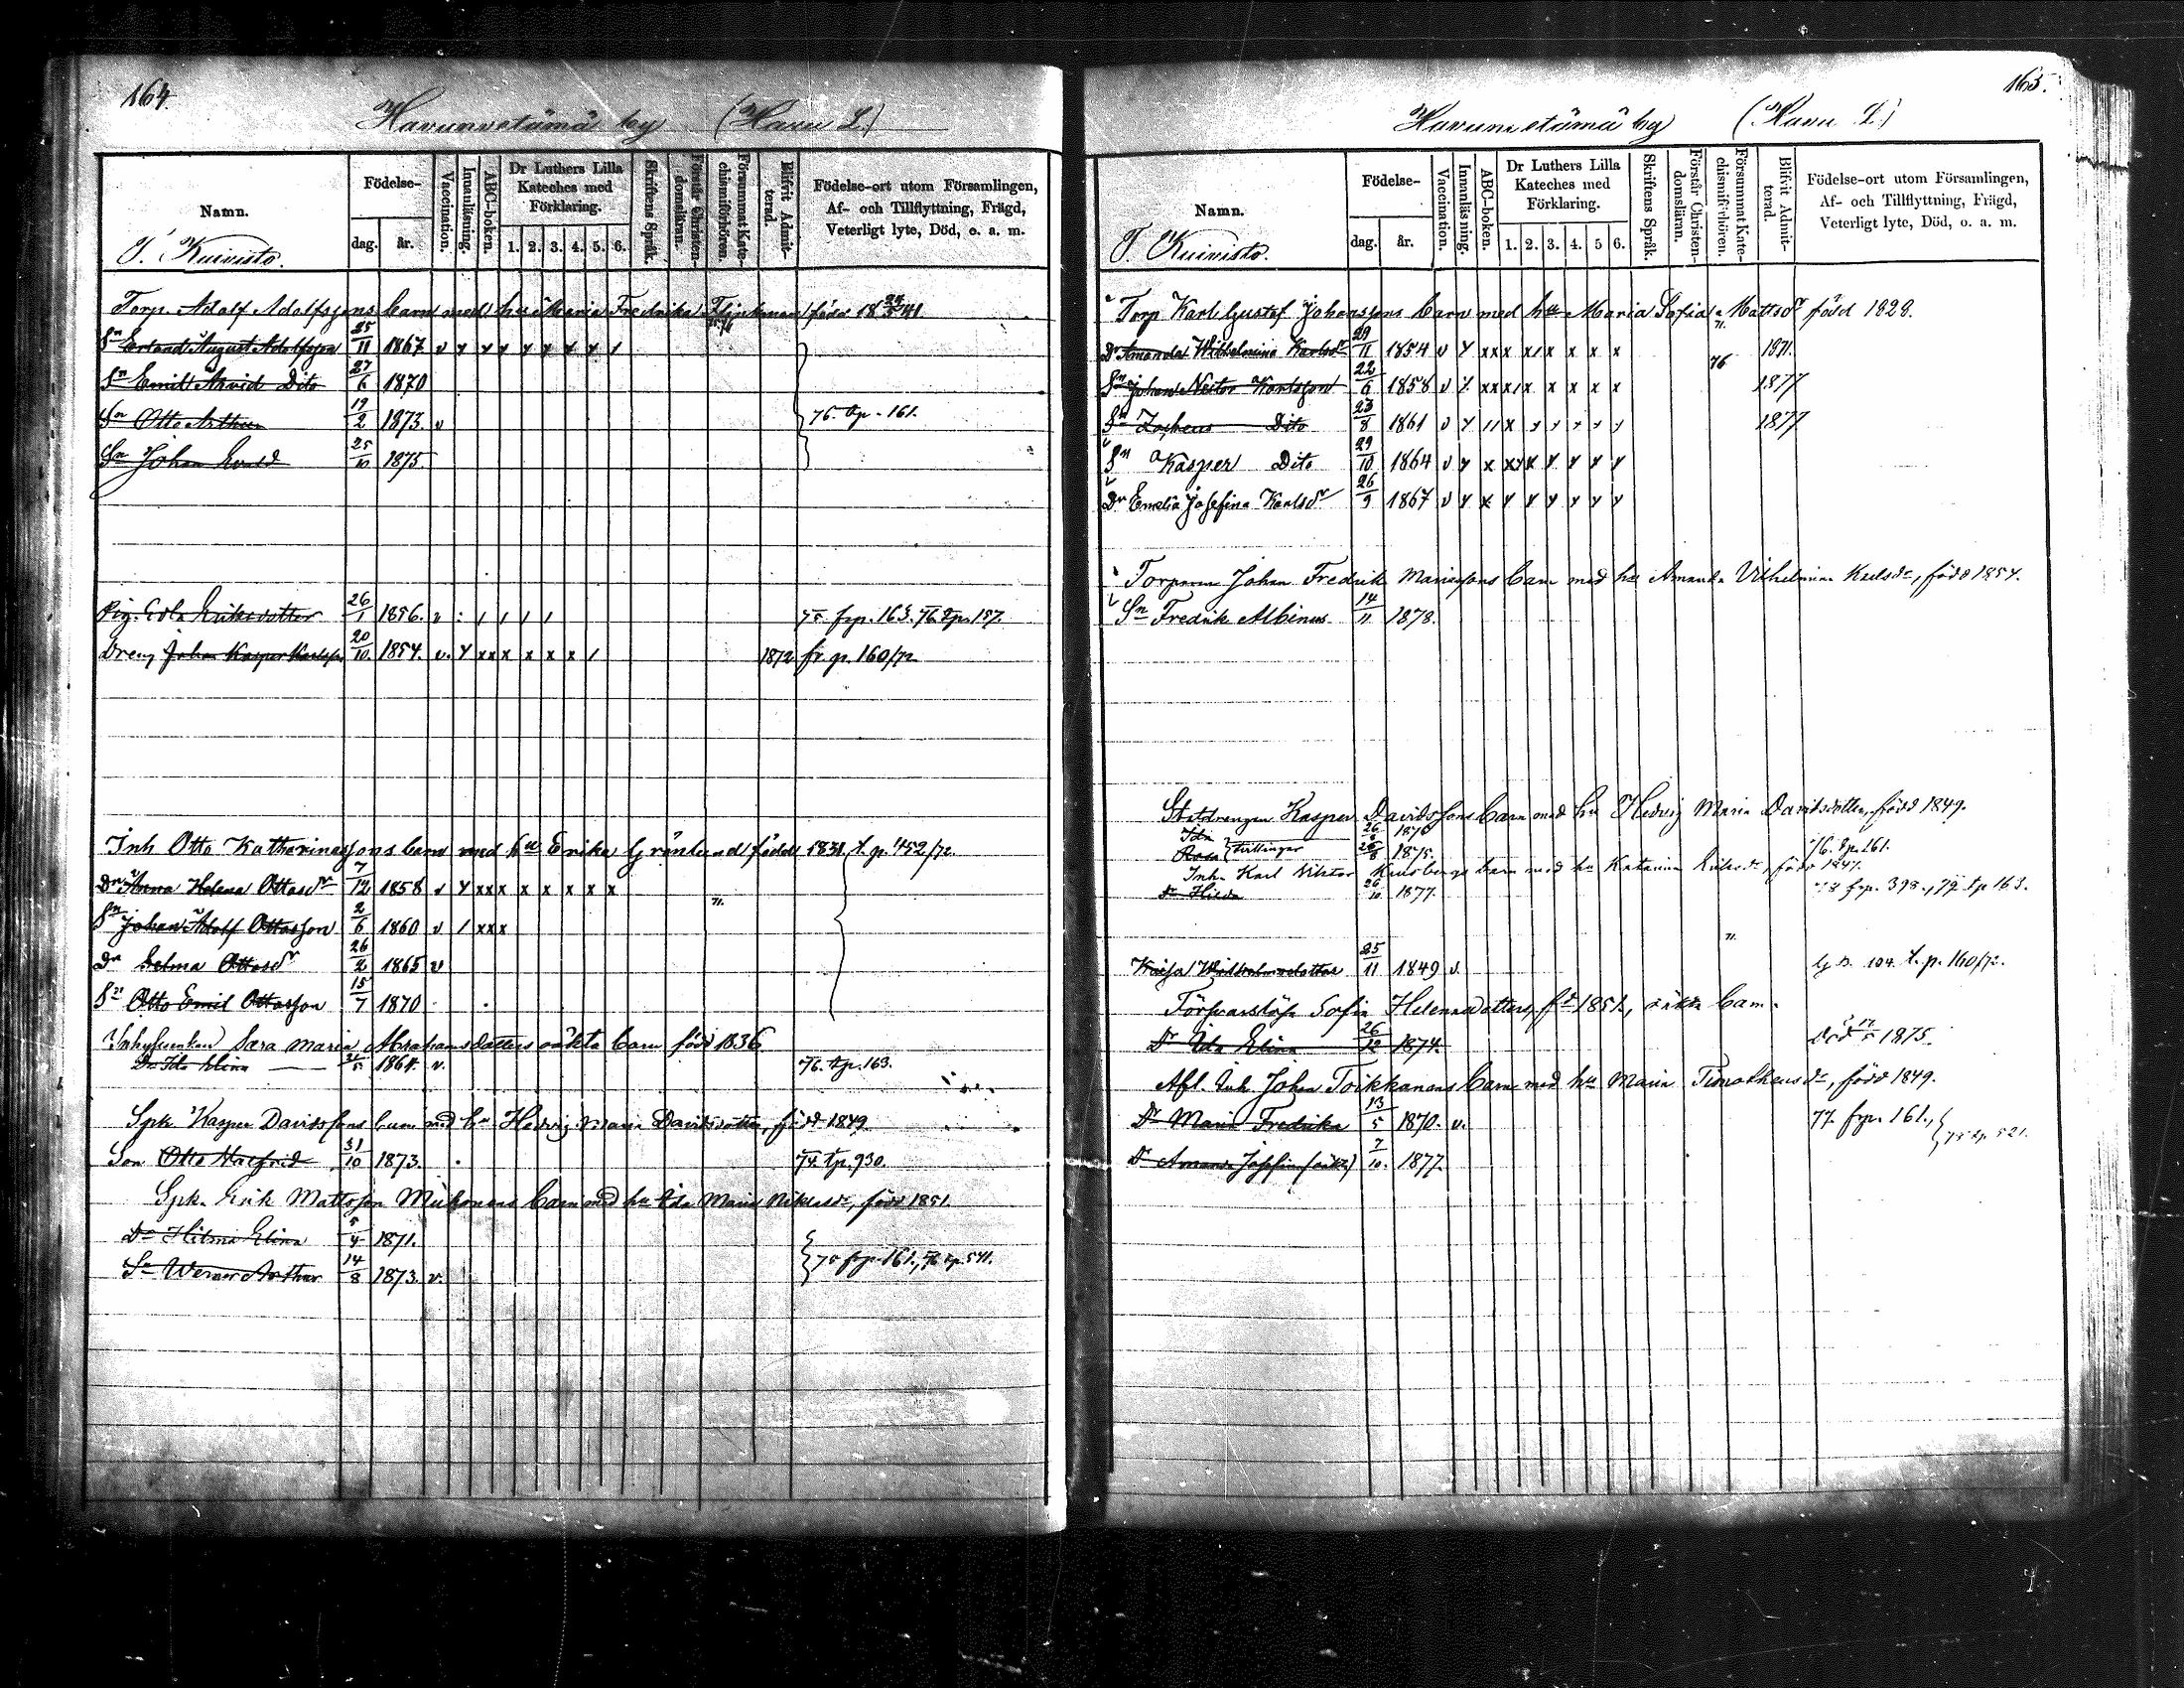 164.
Havunvetämä by (Havu L.)
Namn.
Födelse-
dag.
år.
Vaccination.
Innanläsning.
ABC-boken.
Dr Luthers Lilla Kateches med Förklaring.
1. 2. 3. 4. 5. 6.
Skriftens Språk.
Förstår Christendomsläran.
Försummat Katechismiförhören.
Blifvit Admitterad.
Födelse-ort utom Församlingen, Af- och Tillflyttning, Frägd, Veterligt lyte, Död, o. a. m.
T. Kuivisto.
Torp. Adolf Adolfssons barn med hu Maria Fredrika Flinkman född 1841
Sn Erland August Adolfsson 25/11 1867 v
Sn Emil Arvid Dito 27/6 1870
Sn Otto Arthur 19/2 1873. v 76. tp. 161.
Sn Johan Evald 25/10 1875.
Pig. Edla Eriksdotter 26/1 1856. v 75 frp. 163. 76 tp. 157.
Dreng Johan Kasper Karlsson 20/10 1854. v. y xx x x x x / 1872 fr p. 160/72
Inh Otto Katharinassons barn med hu Erika Grönlund född 1831, t. p. 452/72.
Dr Anna Helena Ottasdr 7/12 1858 v y xx x x x x x x
Sn Johan Adolf Ottosson 2/6 1860 v / xx x
Dr Selma Ottosdr 26/2 1865 v
Sn Otto Emil Ottosson 15/7 1870
Inhysenkan Sara Maria Abrahamsdotters oäkta barn född 1836
Dr Ida Elina 1864. v. 76. tp. 163.
Spk Kasper Davidssons barn med hu Hedvig Maria Davidsdotter, född 1849
Son Otto 31/10 1873. 74. tp. 930.
Spk. Erik Mattsson barn med hu Ida Maria Niklasdr, född 1851.
Dr Hilma Elina 5/4 1871.
Sn Werner Arthur 14/8 1873. v. 75 frp. 161., 76 tp. 541.
165.
Havunvetämä by (Havu L.)
Namn.
Födelse-
dag.
år.
Vaccination.
Innanläsning.
ABC-boken.
Dr Luthers Lilla Kateches med Förklaring.
1. 2. 3. 4. 5 6.
Skriftens Språk.
Förstår Christendomsläran.
Försummat Katechismiförhören.
Blifvit Admitterad.
Födelse-ort utom Församlingen, Af- och Tillflyttning, Frägd, Veterligt lyte, Död, o. a. m.
T. Kuivisto.
Torp Karl Gustaf Johanssons barn med hu Maria Sofia Mattsdr född 1828.
Dr Amanda Wilhelmina Karlsdr 29/11 1854 v y 1871.
Sn Johan Nestor Karlsson 22/6 1858 v 76 1877
Sn Zacheus Dito 23/8 1861 v y 1877
Sn Kasper Dito 29/10 1864 v y
Dr Emelia Josefina Karlsdr 26/9 1867 v y
Torparen Johan Fredrik Mariassons barn med hu Amanda Vilhelmina Karlsdr, född 1854.
Sn Fredrik Albinus 14/11 1878.
Statdrengen Kasper Davidssons barn med hu Hedvig Maria Davidsdotter, född 1849.
Ida
Rosa tvillingar 26/8 1875. 76. tp. 161.
Inh. Karl Viktor Karlsbergs barn med hu Katarina Eriksdr, född 1847.
Dr Hilda 26/10 1877. 78 frp. 398., 79 tp 163.
Kaisa Wilhelmsdotter 25/11 1849 v. t. p. 160/72.
Försvarslösa Sofia Helenasdotters, fd 1851, oäkta barn.
Dr Ida Elina 26/12 1874. Död 1875.
Afl. Inh. Johan Toikkanens barn med hu Maria Timotheusdr, född 1849.
Dr Maria Fredrika 13/5 1870. v. 77. frp. 161., 78 tp. 521.
Dr Amanda Josefina (oäkta) 7/10 1877.